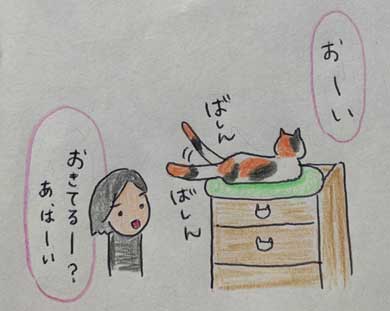 おーい
ばしん
ばしん
おきてるー？
あ、はーい